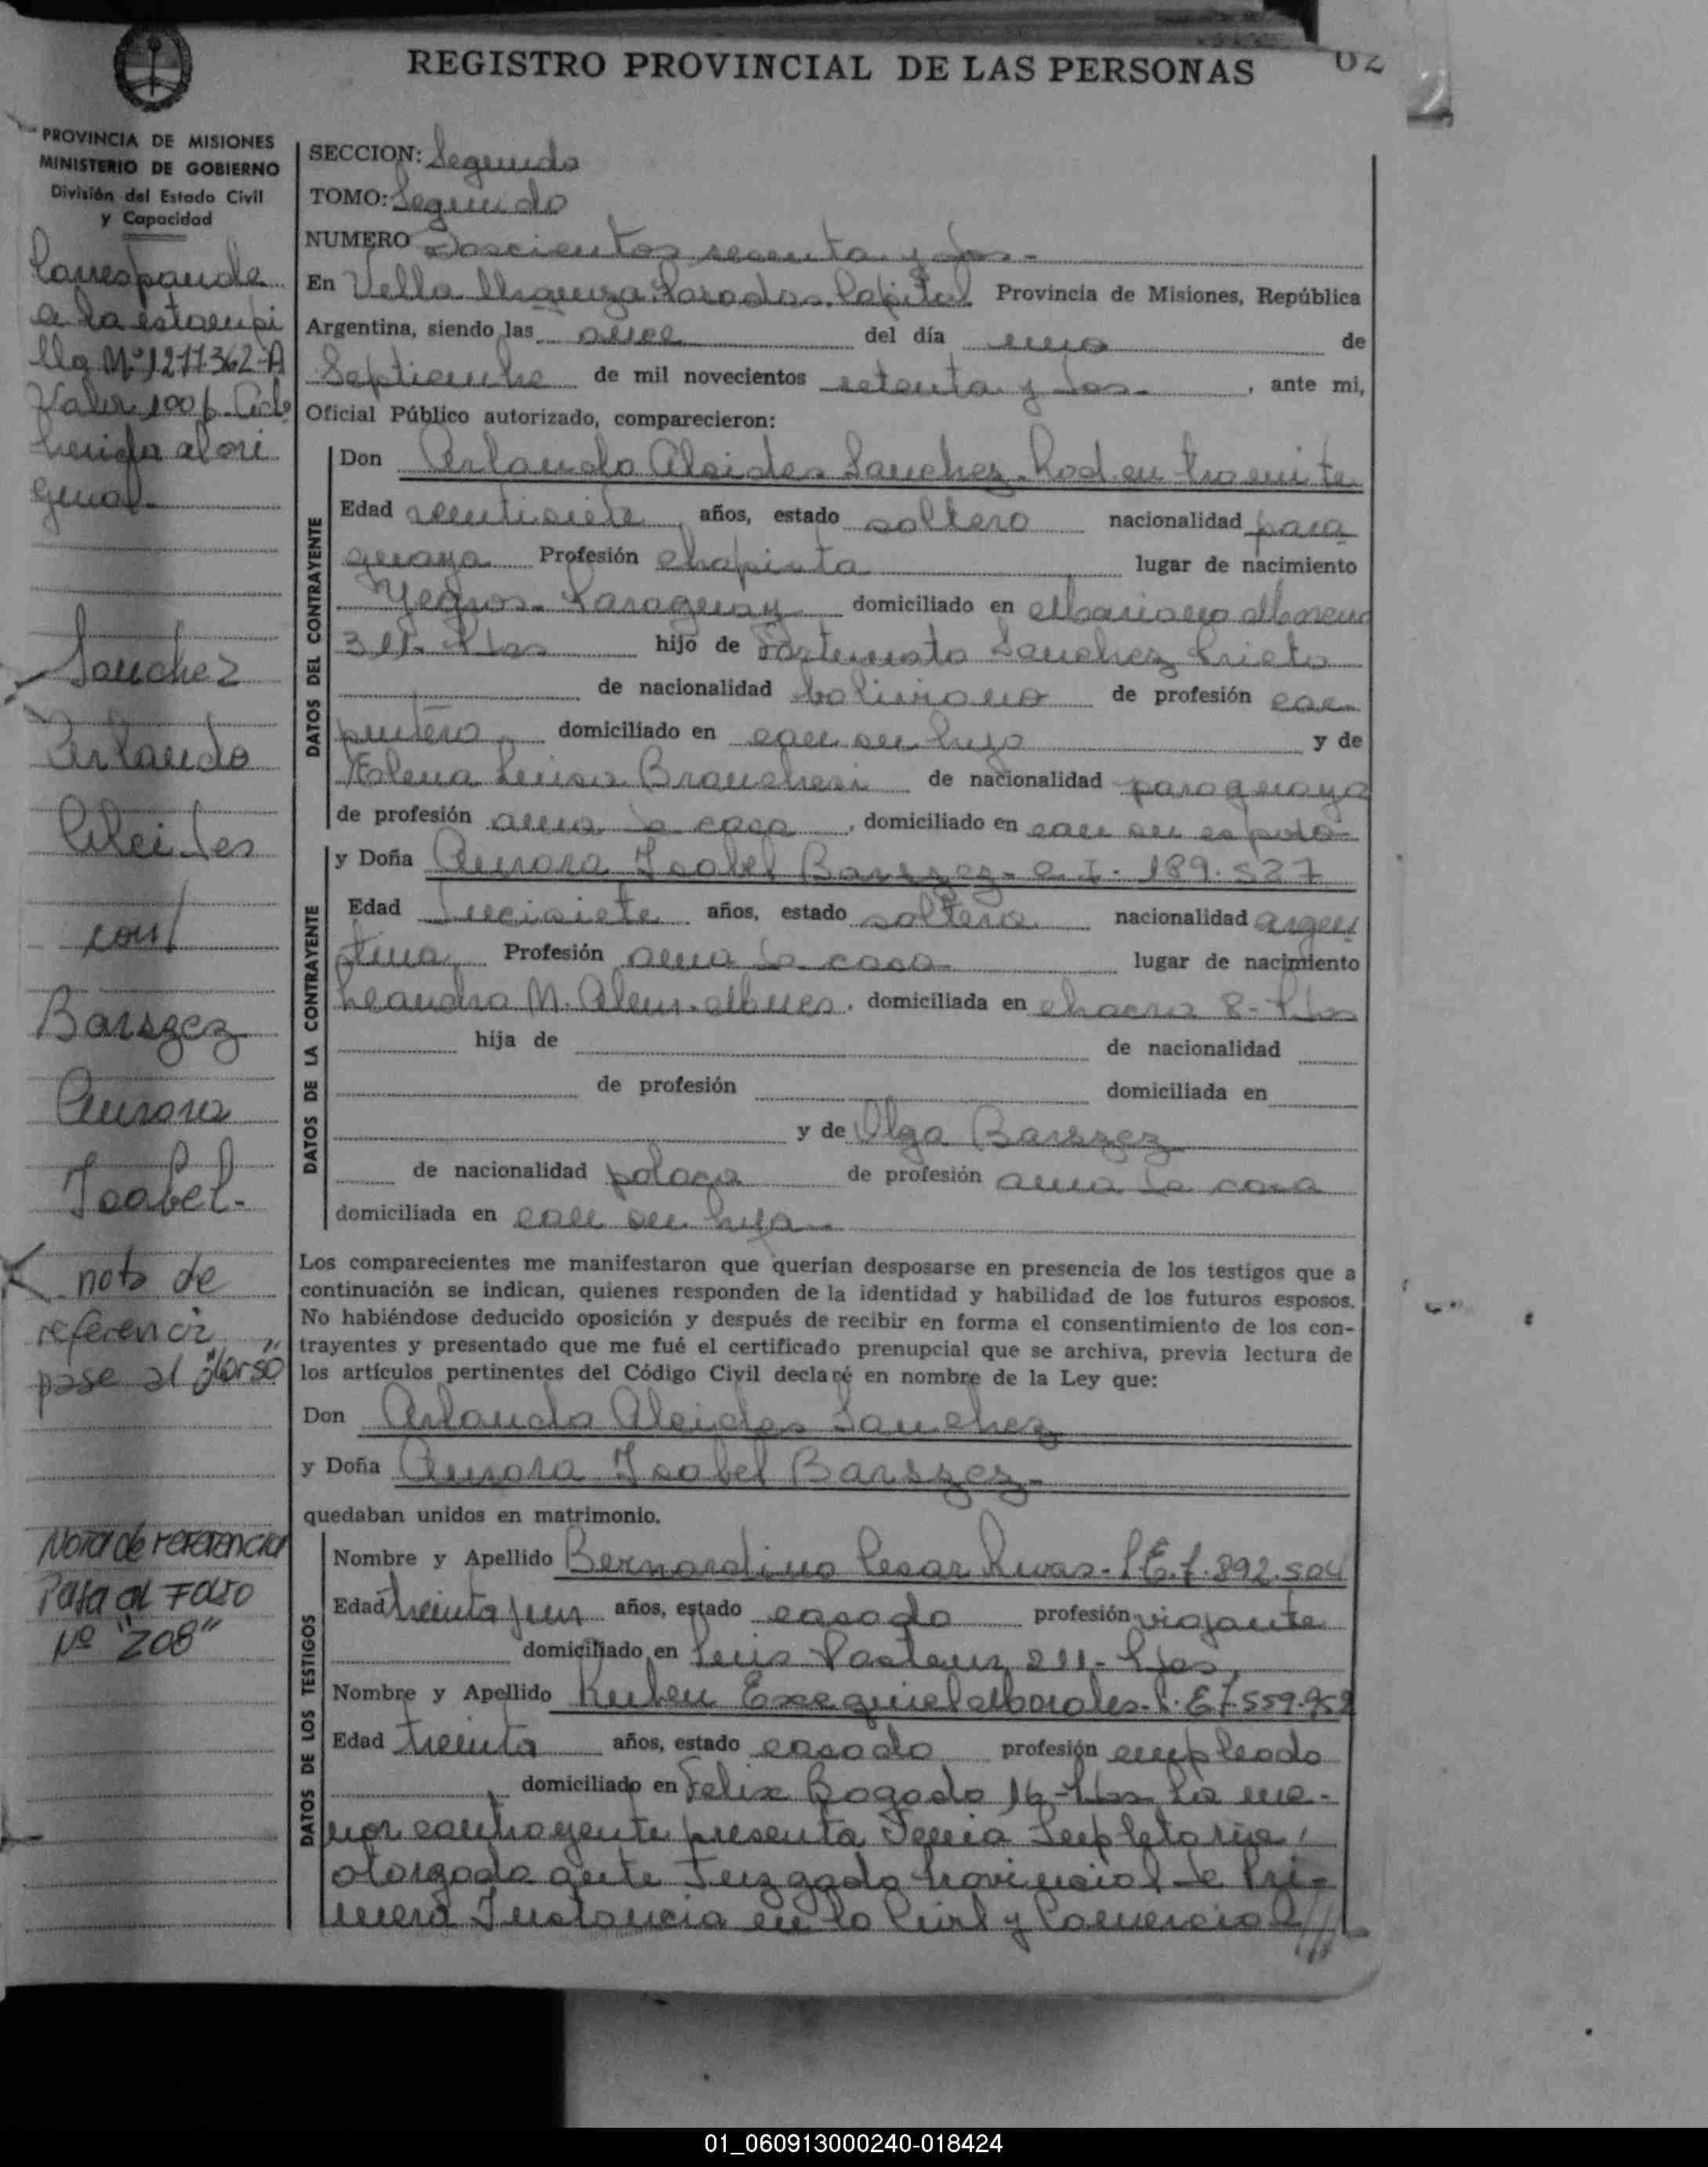 REGISTRO PROVINCIAL DE LAS PERSONAS
62
PROVINCIA DE MISIONES
MINISTERIO DE GOBIERNO
División del Estado Civil
y Capacidad
Corresponde
a la estampi
lla Nº 1277362-A
Valor 100 p. Adhe
herida al ori
ginal.
Sanchez
Orlando
Alcides
con/
Barszez
Aurora
Isabel.
nota de
referencia
pase al "dorso"
Nota de referencia
Pasa al Folio
Nº "208"
SECCION: Segunda
TOMO: Segundo
NUMERO Doscientos sesenta y dos.-
En Villa Posadas. Capital Provincia de Misiones, República
Argentina, siendo las once del día uno de
Septiembre de mil novecientos setenta y dos.- , ante mi,
Oficial Público autorizado, comparecieron:
DATOS DEL CONTRAYENTE
Don Orlando Alcides Sanchez. Rad. en tramite
Edad veintisiete años, estado soltero nacionalidad para
guaya Profesión chapista lugar de nacimiento
Yegros. Paraguay domiciliado en Mariano Moreno
311. Pdas hijo de Fortunato Sanchez Prieto
de nacionalidad boliviano de profesión car
pintero domiciliado en con su hijo y de
Elena Luisa de nacionalidad paraguaya
de profesión ama de casa , domiciliado en con su esposo
DATOS DE LA CONTRAYENTE
y Doña Aurora Isabel Barszez - C.I. 189.527
Edad diecisiete años, estado soltera nacionalidad argen
tina Profesión ama de casa lugar de nacimiento
Leandro N. Alem. Mnes , domiciliada en chacra 8 - Pdas
hija de de nacionalidad
de profesión domiciliada en
y de Olga Barszez
de nacionalidad polaca de profesión ama de casa
domiciliada en con su hija
Los comparecientes me manifestaron que querían desposarse en presencia de los testigos que a
continuación se indican, quienes responden de la identidad y habilidad de los futuros esposos.
No habiéndose deducido oposición y después de recibir en forma el consentimiento de los con-
trayentes y presentado que me fué el certificado prenupcial que se archiva, previa lectura de
los artículos pertinentes del Código Civil declaré en nombre de la Ley que:
Don Orlando Alcides Sanchez
y Doña Aurora Isabel Barszez -
quedaban unidos en matrimonio.
DATOS DE LOS TESTIGOS
Nombre y Apellido Bernardino Cesar Rivas - L.E. 7.892.504
Edad treinta años, estado casado profesión viajante
domiciliado en Luis Pasteur 211 - Pdas
Nombre y Apellido Ruben Exequiel Morales - L.E. 7.559.952
Edad treinta años, estado casado profesión empleado
domiciliado en Felix Bogado 16 - Pdas La me-
nor contrayente presenta Venia Supletoria
otorgada ante Juzgado Provincial de Pri-
mera Instancia en lo Civil y Comercial///
01_060913000240-018424